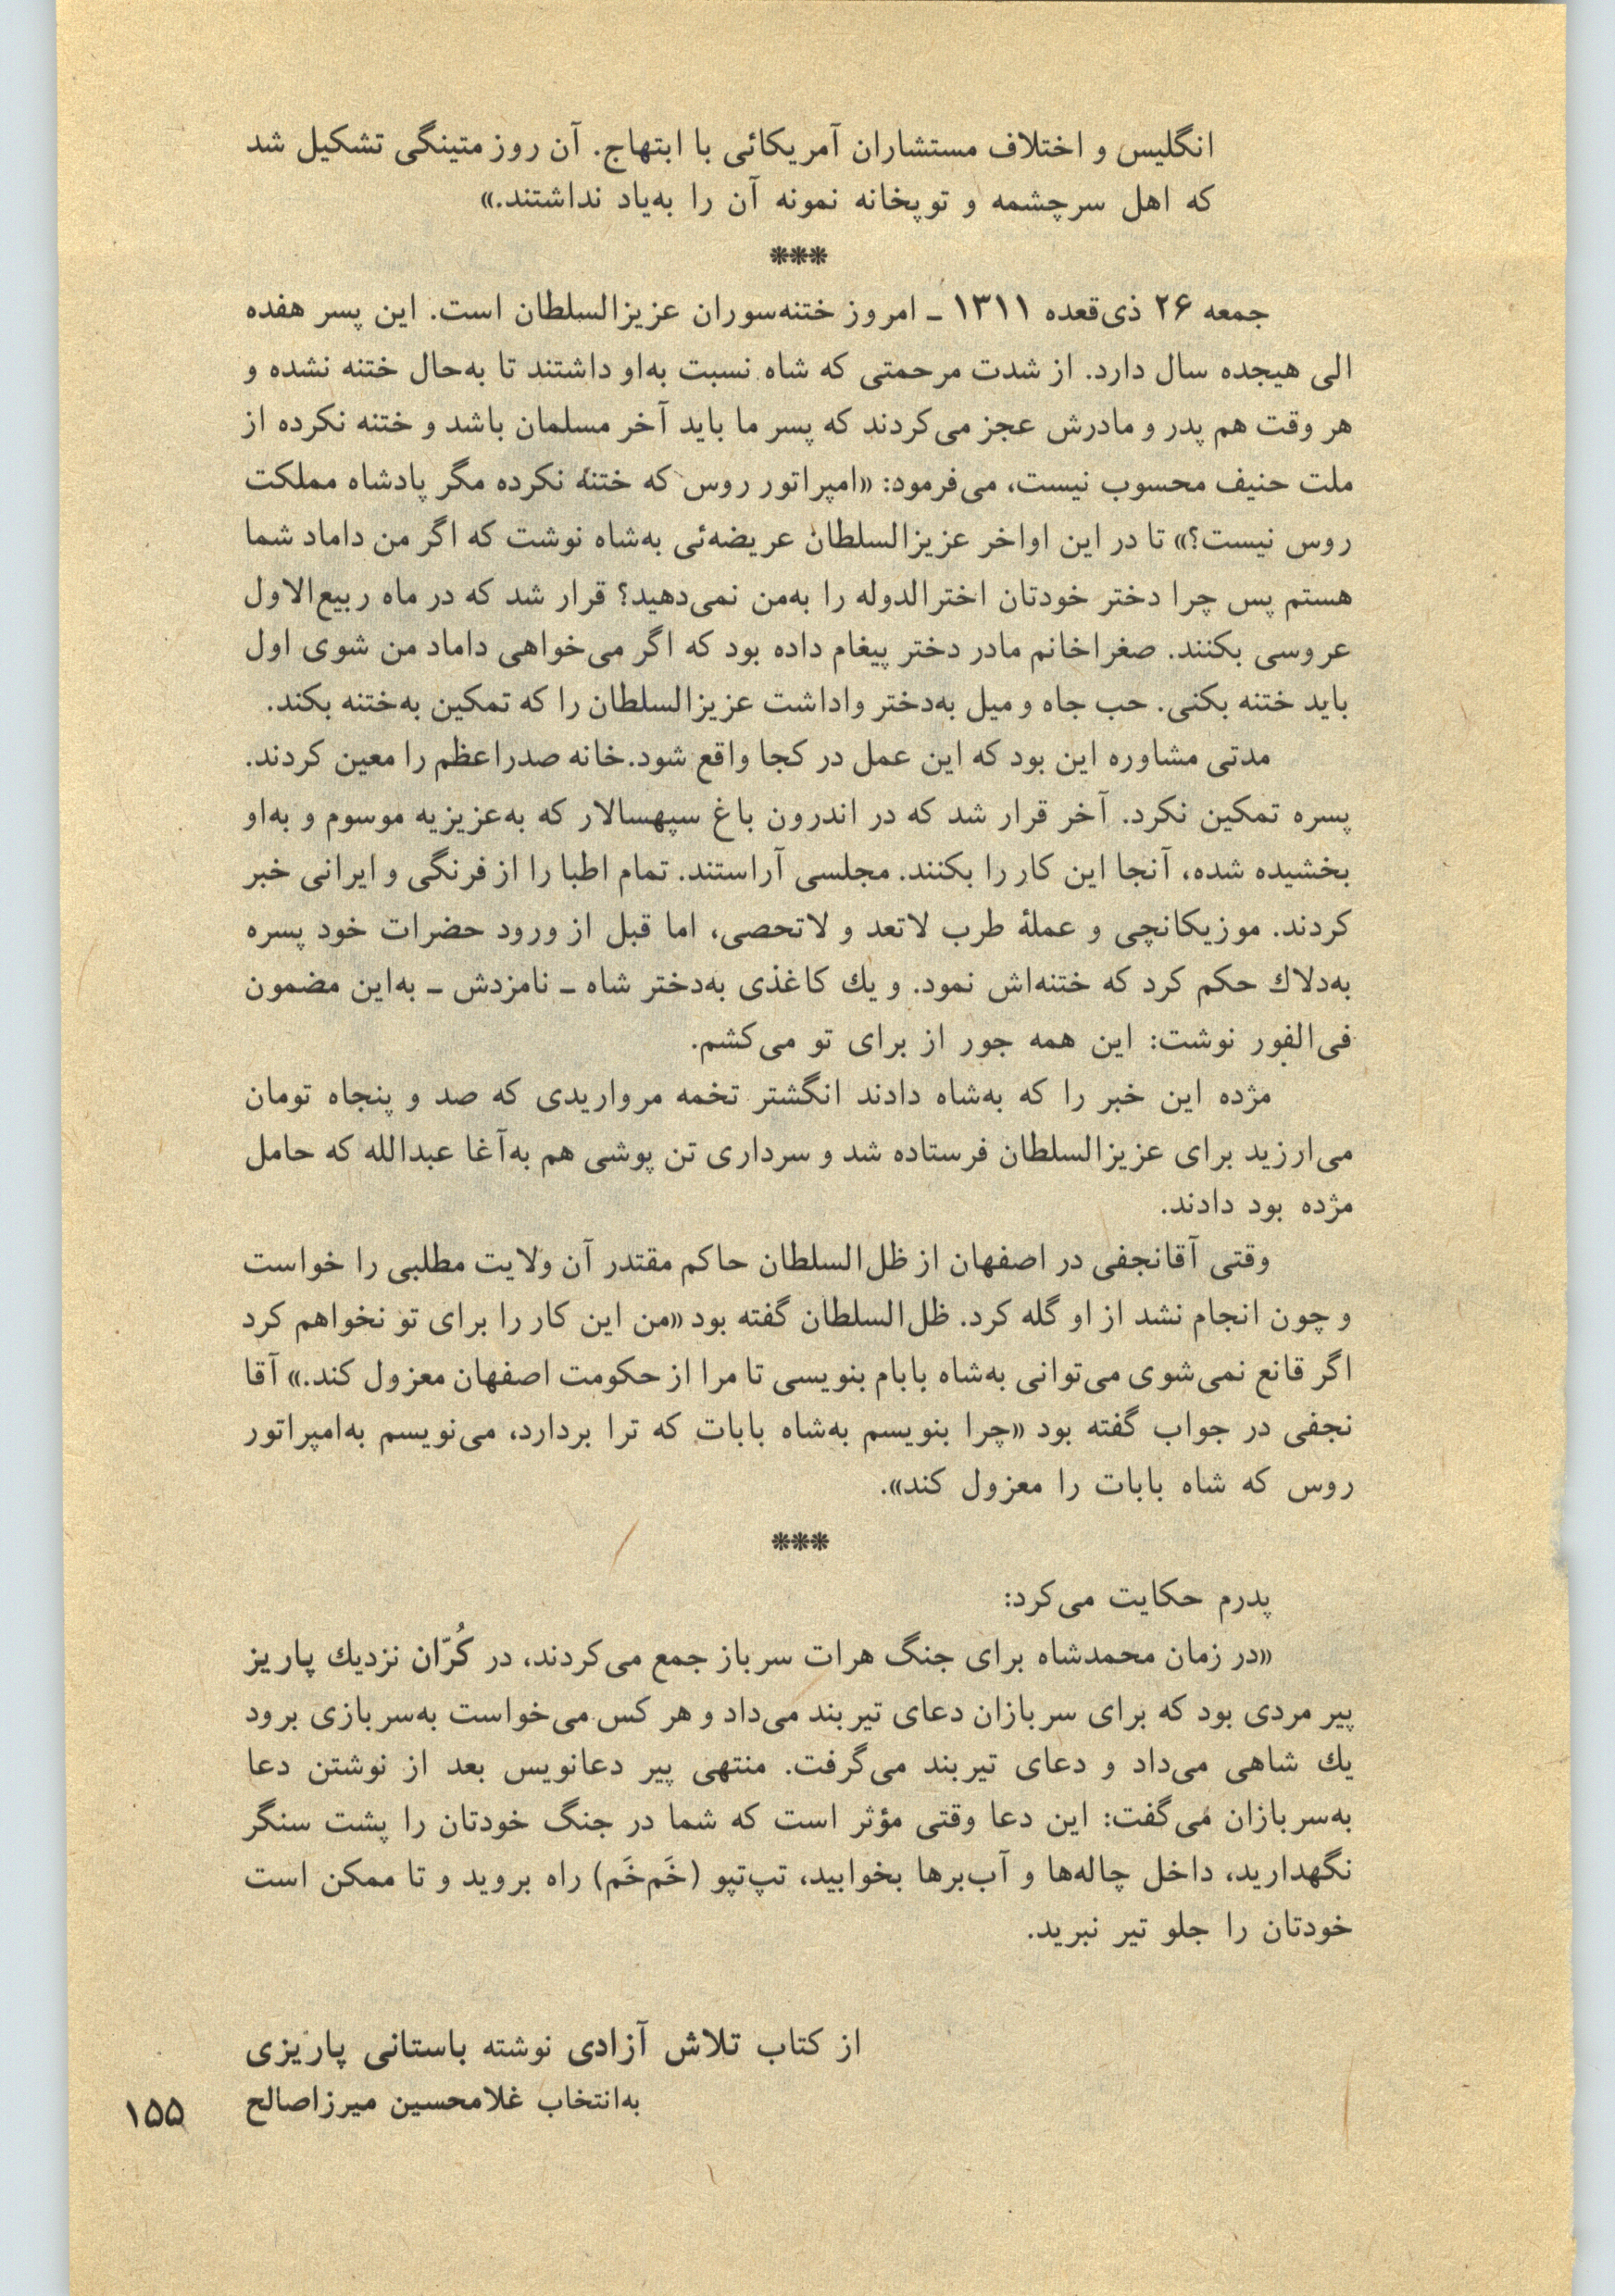 انگلیس و اختلاف مستشاران آمریکائی با ابتهاج. آن روز متینگی تشکیل شد
که اهل سرچشمه و توپخانه نمونه آن را به‌یاد نداشتند.»
***
جمعه ۲۶ ذی‌قعده ۱۳۱۱ ـ امروز ختنه‌سوران عزیزالسلطان است. این پسر هفده
الی هیجده سال دارد. از شدت مرحمتی که شاه نسبت به‌او داشتند تا به‌حال ختنه نشده و
هر وقت هم پدر و مادرش عجز می‌کردند که پسر ما باید آخر مسلمان باشد و ختنه نکرده از
ملت حنیف محسوب نیست، می‌فرمود: «امپراتور روس که ختنهٔ نکرده مگر پادشاه مملکت
روس نیست؟» تا در این اواخر عزیزالسلطان عریضه‌ئی به‌شاه نوشت که اگر من داماد شما
هستم پس چرا دختر خودتان اخترالدوله را به‌من نمی‌دهید؟ قرار شد که در ماه ربیع‌الاول
عروسی بکنند. صغراخانم مادر دختر پیغام داده بود که اگر می‌خواهی داماد من شوی اول
باید ختنه بکنی. حب جاه و میل به‌دختر واداشت عزیزالسلطان را که تمکین به‌ختنه بکند.
مدتی مشاوره این بود که این عمل در کجا واقع شود. خانه صدراعظم را معین کردند.
پسره تمکین نکرد. آخر قرار شد که در اندرون باغ سپهسالار که به‌عزیزیه موسوم و به‌او
بخشیده شده، آنجا این کار را بکنند. مجلسی آراستند. تمام اطبا را از فرنگی و ایرانی خبر
کردند. موزیکانچی و عملهٔ طرب لاتعد و لاتحصی، اما قبل از ورود حضرات خود پسره
به‌دلاك حکم کرد که ختنه‌اش نمود. و یك کاغذی به‌دختر شاه ـ نامزدش ـ به‌این مضمون
فی‌الفور نوشت: این همه جور از برای تو می‌کشم.
مژده این خبر را که به‌شاه دادند انگشتر تخمه مرواریدی که صد و پنجاه تومان
می‌ارزید برای عزیزالسلطان فرستاده شد و سرداری تن پوشی هم به‌آغا عبدالله که حامل
مژده بود دادند.
وقتی آقانجفی در اصفهان از ظل‌السلطان حاکم مقتدر آن ولایت مطلبی را خواست
و چون انجام نشد از او گله کرد. ظل‌السلطان گفته بود «من این کار را برای تو نخواهم کرد
اگر قانع نمی‌شوی می‌توانی به‌شاه بابام بنویسی تا مرا از حکومت اصفهان معزول کند.» آقا
نجفی در جواب گفته بود «چرا بنویسم به‌شاه بابات که ترا بردارد، می‌نویسم به‌امپراتور
روس که شاه بابات را معزول کند».
***
پدرم حکایت می‌کرد:
«در زمان محمدشاه برای جنگ هرات سرباز جمع می‌کردند، در کُرّان نزدیك پاریز
پیر مردی بود که برای سربازان دعای تیربند می‌داد و هر کس می‌خواست به‌سربازی برود
یك شاهی می‌داد و دعای تیربند می‌گرفت. منتهی پیر دعانویس بعد از نوشتن دعا
به‌سربازان می‌گفت: این دعا وقتی مؤثر است که شما در جنگ خودتان را پشت سنگر
نگهدارید، داخل چاله‌ها و آب‌برها بخوابید، تپ‌تپو (خَم‌خَم) راه بروید و تا ممکن است
خودتان را جلو تیر نبرید.
از کتاب تلاش آزادی نوشته باستانی پاریزی
به‌انتخاب غلامحسین میرزاصالح
۱۵۵